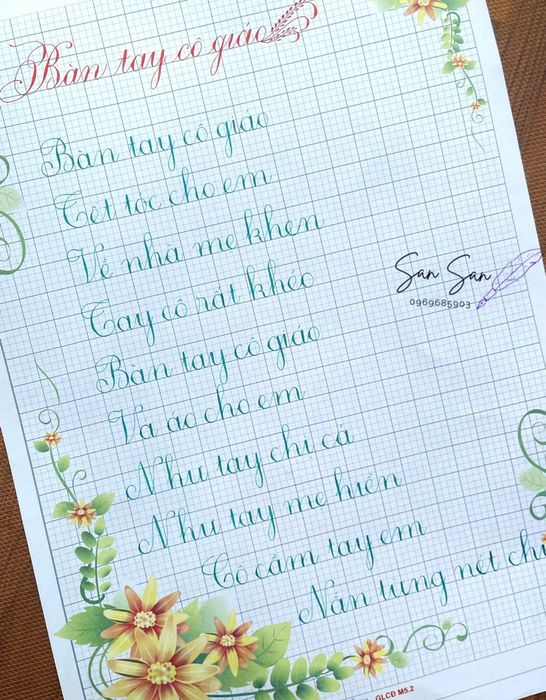 Bàn tay cô giáo
Bàn tay cô giáo
Tết tóc cho em
Về nhà mẹ khen
Tay cô rất khéo
Bàn tay cô giáo
Vá áo cho em
Như tay chị cả
Như tay mẹ hiền
Cô cầm tay em
Nắn từng nét chữ
San San
0969685903
GLCD M5.2